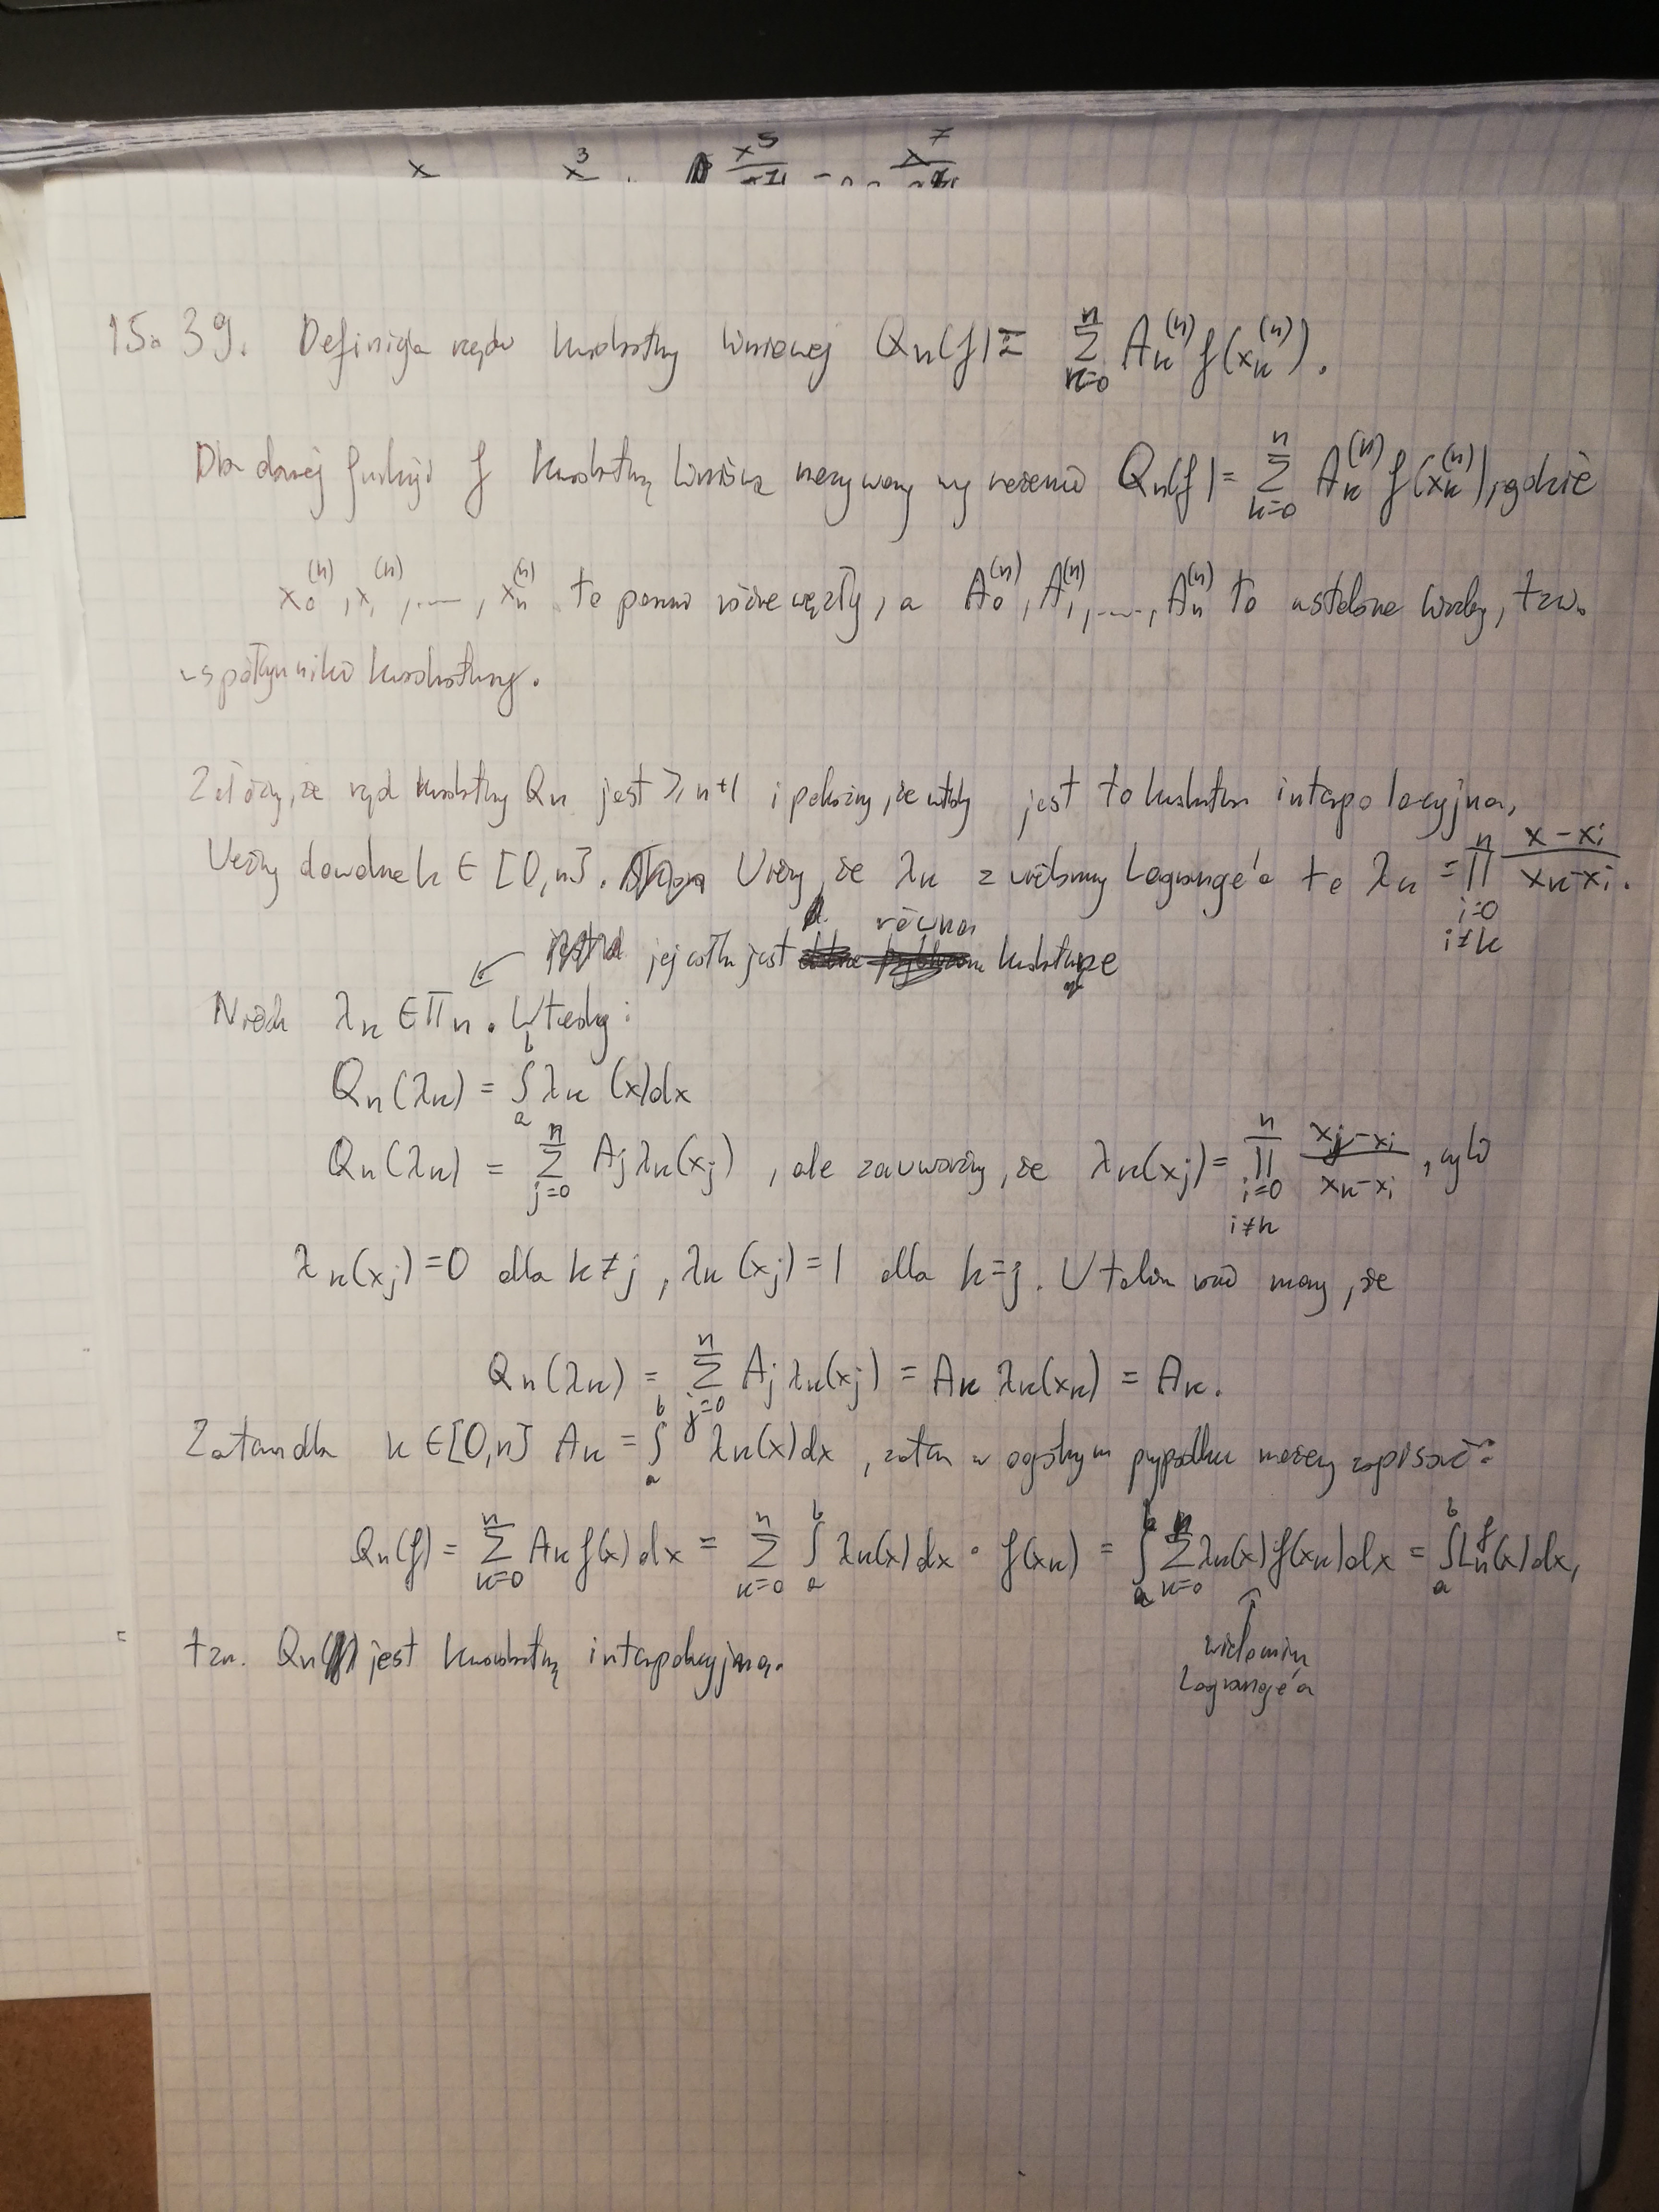 x x³ . x⁵ - x⁷
15. 39. Definicja rzędu kwadratury liniowej Qn(f) = \sum_{k=0}^{n} A_k^{(n)} f(x_k^{(n)}).
Dla danej funkcji f kwadraturą liniową nazywamy wyrażenie Qn(f) = \sum_{k=0}^{n} A_k^{(n)} f(x_k^{(n)}), gdzie
x_0^{(n)}, x_1^{(n)}, ..., x_n^{(n)} to parami różne węzły, a A_0^{(n)}, A_1^{(n)}, ..., A_n^{(n)} to ustalone liczby, tzw.
współczynniki kwadratury.
Załóżmy, że rząd kwadratury Qn jest ≥ n+1 i pokażmy, że wtedy jest to kwadratura interpolacyjna.
Weźmy dowolne k ∈ [0,n]. Wiemy, że λk z wielomianu Lagrange'a to λk = \prod_{i=0, i≠k}^{n} \frac{x - x_i}{x_k - x_i}.
← jej całka jest równa kwadraturze
Niech λk ∈ Πn. Wtedy:
Qn(λk) = \int_a^b λk (x)dx
Qn(λk) = \sum_{j=0}^{n} Aj λk(xj), ale zauważmy, że λk(xj) = \prod_{i=0, i≠k}^{n} \frac{x_j - x_i}{x_k - x_i}, czyli
λk(xj) = 0 dla k ≠ j, λk(xj) = 1 dla k = j. W takim razie mamy, że
Qn(λk) = \sum_{j=0}^{n} Aj λk(xj) = Ak λk(xk) = Ak.
Zatem dla k ∈ [0,n] Ak = \int_a^b λk(x)dx, zatem w ogólnym przypadku możemy zapisać:
Qn(f) = \sum_{k=0}^{n} Ak f(x) dx = \sum_{k=0}^{n} \int_a^b λk(x)dx · f(xk) = \int_a^b \sum_{k=0}^{n} λk(x) f(xk)dx = \int_a^b L_n^f(x)dx,
↑ wielomian
Lagrange'a
tzn. Qn jest kwadraturą interpolacyjną.